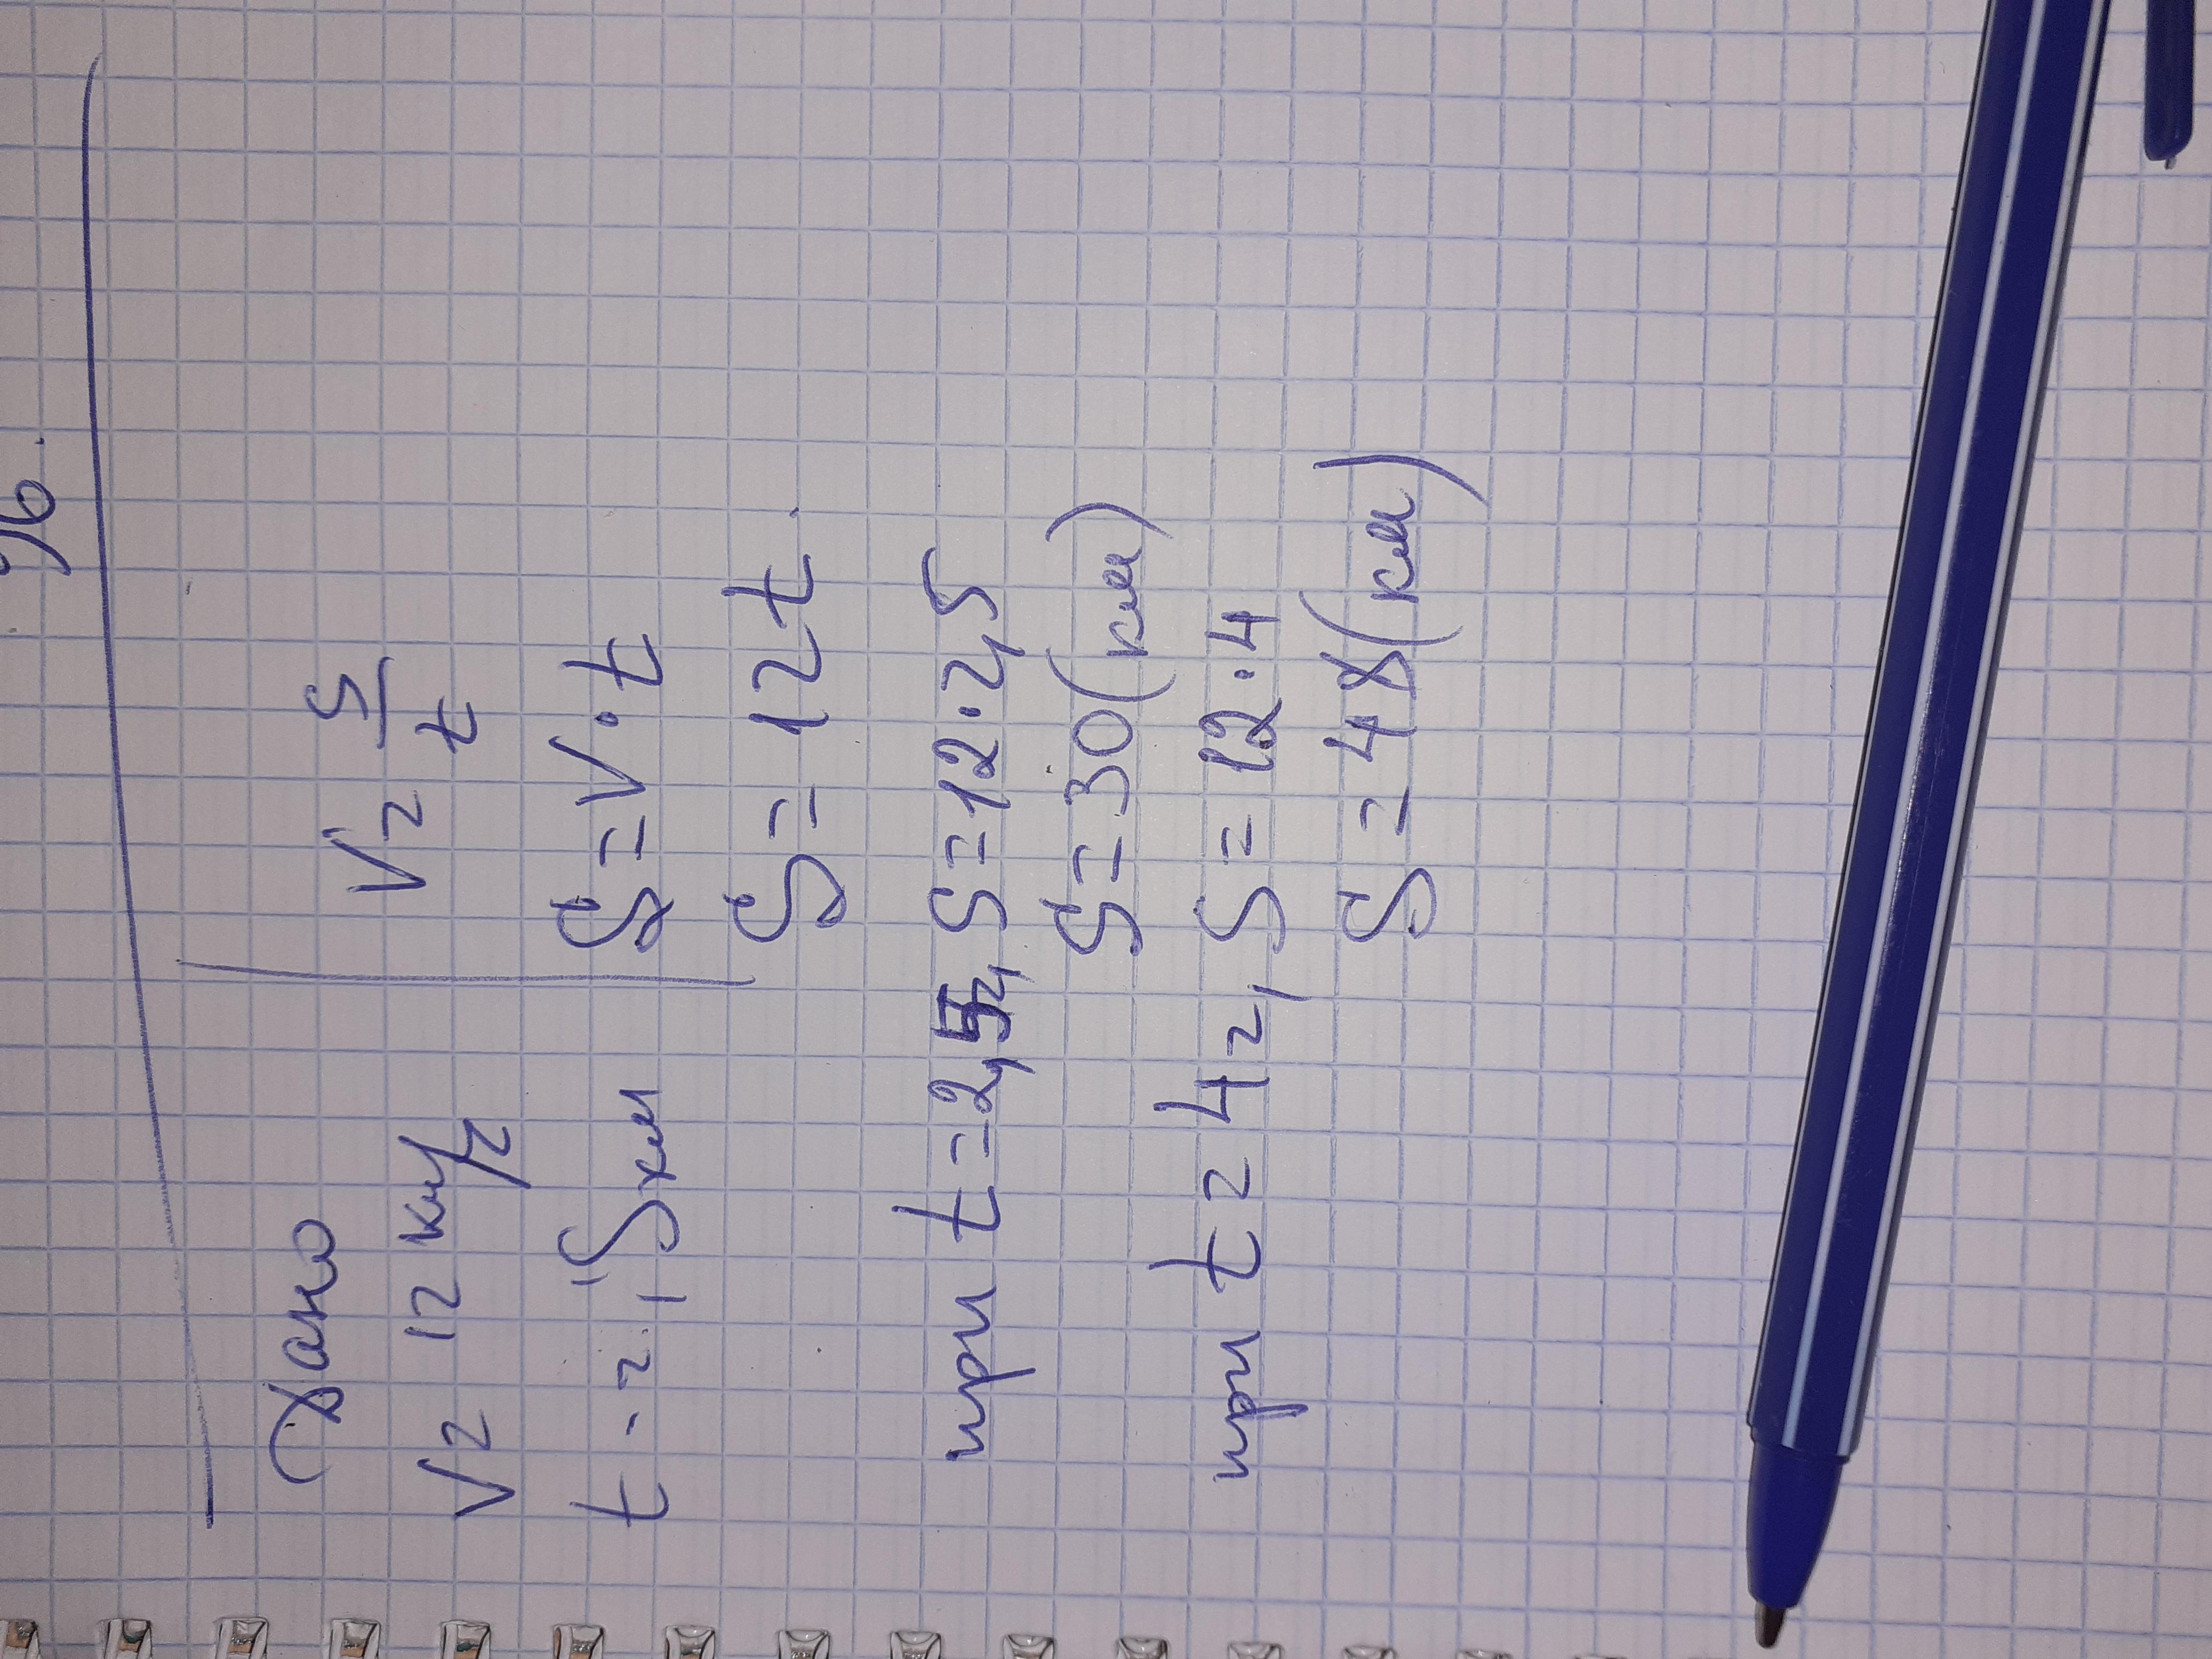 %.
Дано
V = 12 км/ч
V = S/t
t - ч, S км
S = V · t
S = 12 t.
при t = 2,5ч, S = 12 · 2,5
S = 30 (км)
при t = 4ч, S = 12 · 4
S = 48 (км)